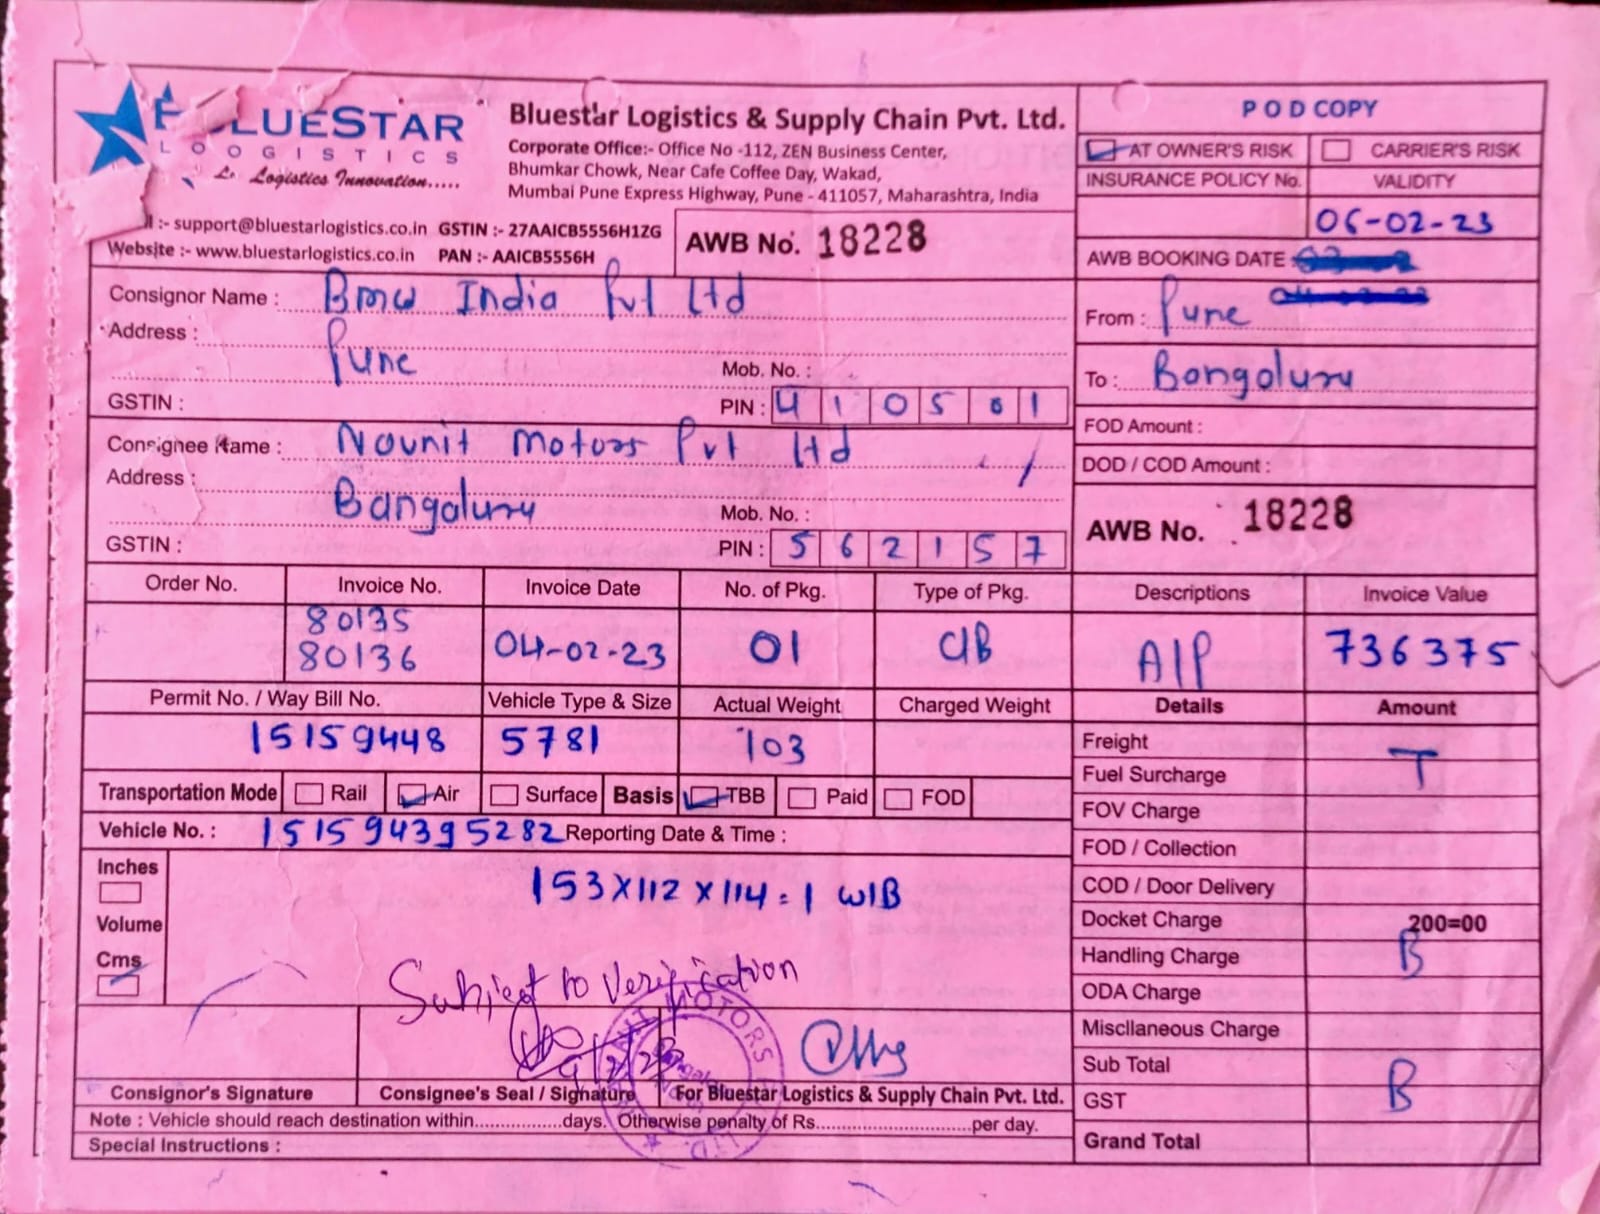 BLUESTAR
LOOGISTICS
Logistics Innovation.....
Bluestar Logistics & Supply Chain Pvt. Ltd.
Corporate Office:- Office No -112, ZEN Business Center,
Bhumkar Chowk, Near Cafe Coffee Day, Wakad,
Mumbai Pune Express Highway, Pune - 411057, Maharashtra, India
:- support@bluestarlogistics.co.in GSTIN :- 27AAICB5556H1ZG
Website :- www.bluestarlogistics.co.in PAN :- AAICB5556H
AWB No. 18228
POD COPY
AT OWNER'S RISK CARRIER'S RISK
INSURANCE POLICY No. VALIDITY
06-02-23
AWB BOOKING DATE
From : Pune
To : Bangaluru
FOD Amount :
DOD / COD Amount :
AWB No. 18228
Consignor Name : Bmw India Pvt Ltd
Address :
Pune
Mob. No. :
GSTIN : PIN : 410501
Consignee Name : Navnit Motors Pvt Ltd
Address :
Bangaluru
Mob. No. :
GSTIN : PIN : 562157
Order No. Invoice No. Invoice Date No. of Pkg. Type of Pkg. Descriptions Invoice Value
80135
80136 04-02-23 01 C/B A/P 736375
Permit No. / Way Bill No. Vehicle Type & Size Actual Weight Charged Weight Details Amount
15159448 5781 103
Transportation Mode Rail Air Surface Basis TBB Paid FOD
Vehicle No. : 151594395282 Reporting Date & Time :
Inches
Volume
Cms
153 X 112 X 114 = 1 W/B
Subject to Verification
9/2/23
Freight
T
Fuel Surcharge
FOV Charge
FOD / Collection
COD / Door Delivery
Docket Charge 200=00
Handling Charge B
ODA Charge
Miscllaneous Charge
Sub Total
GST B
Grand Total
MOTORS
LTD.
Consignor's Signature Consignee's Seal / Signature For Bluestar Logistics & Supply Chain Pvt. Ltd.
Note : Vehicle should reach destination within.................days. Otherwise penalty of Rs.............................per day.
Special Instructions :